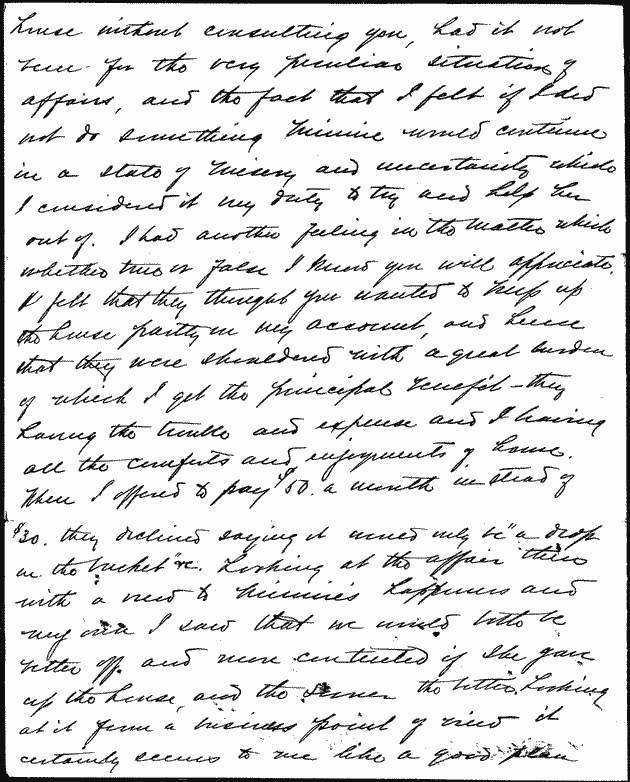 house without consulting you, had it not
been for the very peculiar situation of
affairs, and the fact that I felt if I did
not do something Minnie would continue
in a state of misery and uncertainty which
I considered it my duty to try and help her
out of. I had another feeling in the matter which
whether true or false I know you will appreciate.
I felt that they thought you wanted to keep up
the house partly on my account, and hence
that they were shouldered with a great burden
of which I get the principal benefit – they
having the trouble and expense and I having
all the comforts and enjoyments of home.
When I offered to pay $50. a month in stead of
$30. they declined saying it would only be "a drop
in the bucket" &c. Looking at the affair then
with a view to Minnie's happiness and
my own I saw that we would both be
better off and more contented if she gave
up the house, and the sooner the better. Looking
at it from a business point of view it
certainly seems to me like a good plan